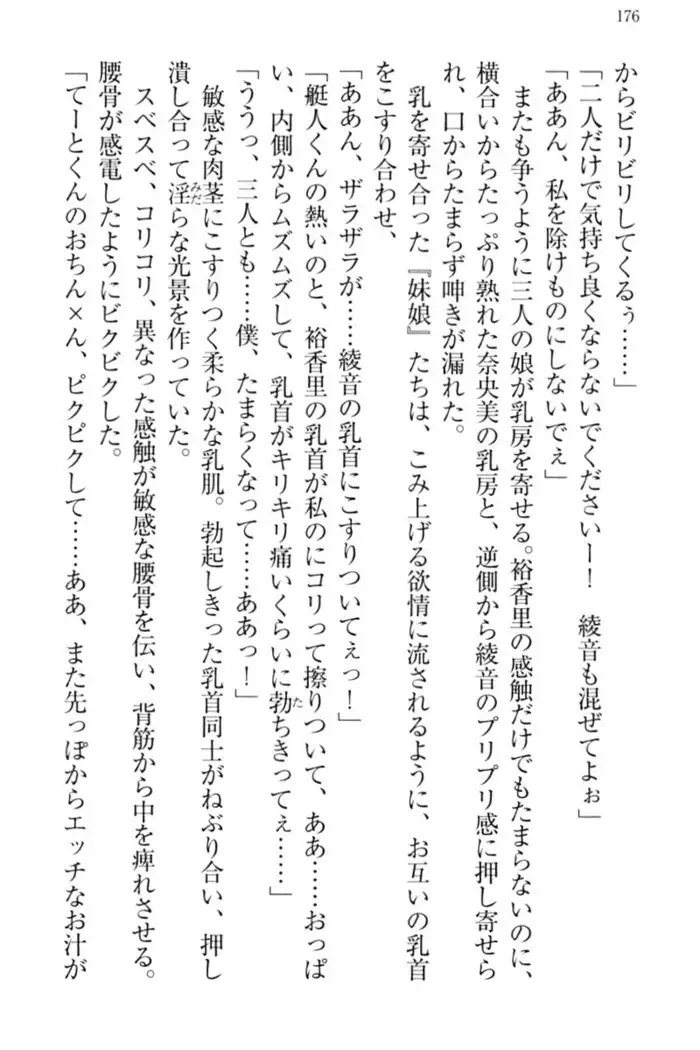 176
からビリビリしてくるぅ……」
「二人だけで気持ち良くならないでくださいー！　綾音も混ぜてよぉ」
「ああん、私を除けものにしないでぇ」
またも争うように三人の娘が乳房を寄せる。裕香里の感触だけでもたまらないのに、
横合いからたっぷり熟れた奈央美の乳房と、逆側から綾音のプリプリ感に押し寄せら
れ、口からたまらず呻きが漏れた。
乳を寄せ合った『妹娘』たちは、こみ上げる欲情に流されるように、お互いの乳首
をこすり合わせ、
「ああん、ザラザラが……綾音の乳首にこすりついてぇっ！」
「艇人くんの熱いのと、裕香里の乳首が私のにコリって擦りついて、ああ……おっぱ
い、内側からムズムズして、乳首がキリキリ痛いくらいに勃ちきってぇ……」
「ううっ、三人とも……僕、たまらくなって……ああっ！」
敏感な肉茎にこすりつく柔らかな乳肌。勃起しきった乳首同士がねぶり合い、押し
潰し合って淫らな光景を作っていた。
スベスベ、コリコリ、異なった感触が敏感な腰骨を伝い、背筋から中を痺れさせる。
腰骨が感電したようにビクビクした。
「てーとくんのおちん×ん、ピクピクして……ああ、また先っぽからエッチなお汁が